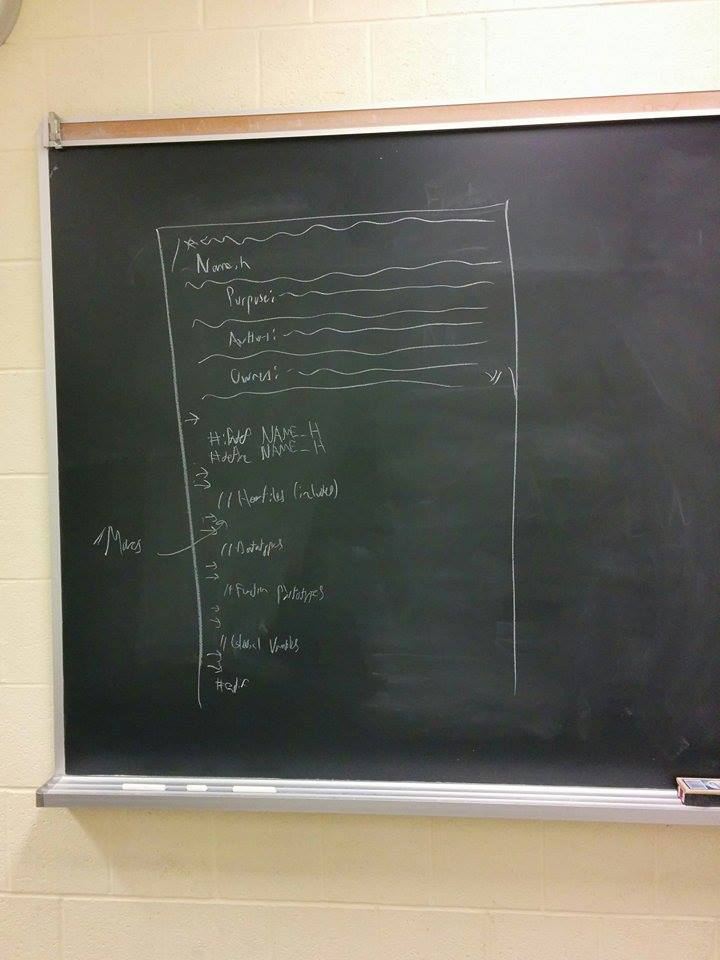 /*
Name.h
Purpose:
Author:
Owner:
*/
#ifndef NAME_H
#define NAME_H
// Headfiles (included)
// Datatypes
// Function Prototypes
// Global Variables
#endif